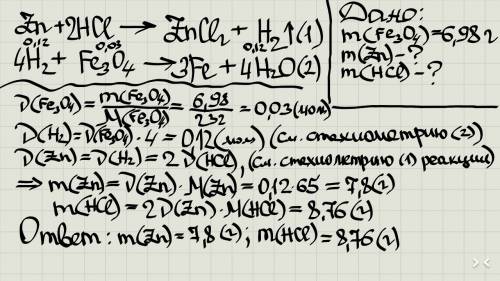 Zn+2HCl → ZnCl₂ + H₂↑(1)
0,12 0,03 0,12
4H₂+ Fe₃O₄ → 3Fe + 4H₂O(2)
Дано:
m(Fe₃O₄)=6,98 г
m(Zn)-?
m(HCl)-?
ν(Fe₃O₄)= m(Fe₃O₄)/M(Fe₃O₄) = 6,98/232 = 0,03(моль)
ν(H₂)=ν(Fe₃O₄)·4=0,12(моль) (см. стехиометрию (2))
ν(Zn)=ν(H₂)=2ν(HCl), (см. стехиометрию (1) реакции)
⇒ m(Zn)=ν(Zn)·M(Zn)=0,12·65=7,8(г)
m(HCl)=2ν(Zn)·M(HCl)=8,76(г)
Ответ: m(Zn)=7,8(г); m(HCl)=8,76(г)